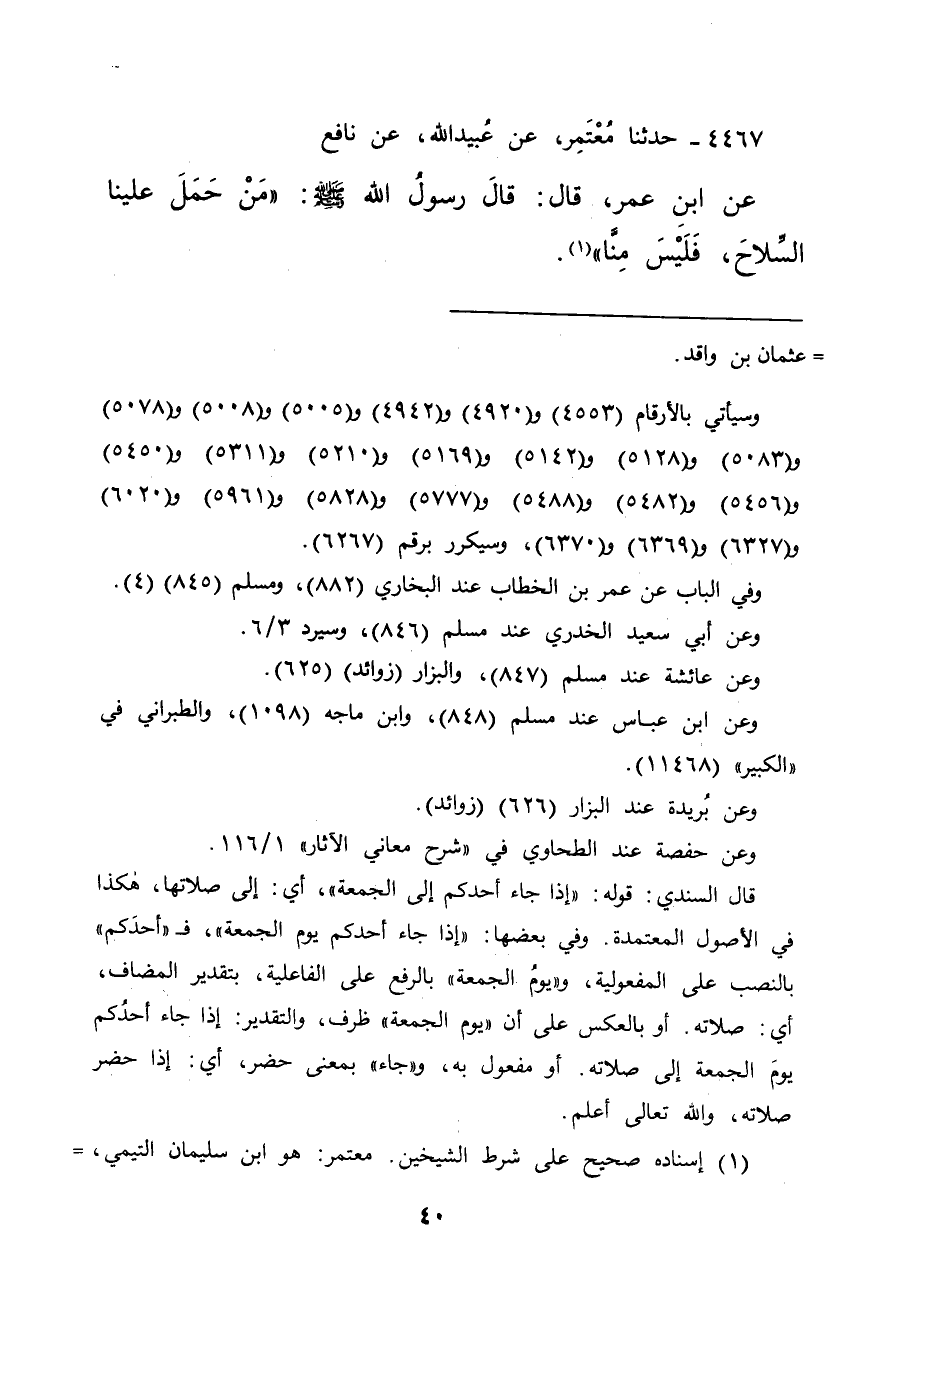 ٤٤٦٧ ـ حدثنا مُعْتَمِر، عن عُبيدالله، عن نافع
عن ابنِ عمر، قال: قالَ رسولُ الله ﷺ: «مَنْ حَمَلَ علينا
السِّلاحَ، فَلَيْسَ مِنَّا»(١).
= عثمان بن واقد.
وسيأتي بالأرقام (٤٥٥٣) و(٤٩٢٠) و(٤٩٤٢) و(٥٠٠٥) و(٥٠٠٨) و(٥٠٧٨)
و(٥٠٨٣) و(٥١٢٨) و(٥١٤٢) و(٥١٦٩) و(٥٢١٠) و(٥٣١١) و(٥٤٥٠)
و(٥٤٥٦) و(٥٤٨٢) و(٥٤٨٨) و(٥٧٧٧) و(٥٨٢٨) و(٥٩٦١) و(٦٠٢٠)
و(٦٣٢٧) و(٦٣٦٩) و(٦٣٧٠)، وسيكرر برقم (٦٢٦٧).
وفي الباب عن عمر بن الخطاب عند البخاري (٨٨٢)، ومسلم (٨٤٥) (٤).
وعن أبي سعيد الخدري عند مسلم (٨٤٦)، وسيرد ٦/٣.
وعن عائشة عند مسلم (٨٤٧)، والبزار (زوائد) (٦٢٥).
وعن ابن عباس عند مسلم (٨٤٨)، وابن ماجه (١٠٩٨)، والطبراني في
«الكبير» (١١٤٦٨).
وعن بُريدة عند البزار (٦٢٦) (زوائد).
وعن حفصة عند الطحاوي في «شرح معاني الآثار» ١١٦/١.
قال السندي: قوله: «إذا جاء أحدكم إلى الجمعة»، أي: إلى صلاتها، هٰكذا
في الأصول المعتمدة. وفي بعضها: «إذا جاء أحدكم يوم الجمعة»، فـ«أحدَكم»
بالنصب على المفعولية، و«يومُ الجمعة» بالرفع على الفاعلية، بتقدير المضاف،
أي: صلاته. أو بالعكس على أن «يوم الجمعة» ظرف، والتقدير: إذا جاء أحدُكم
يومَ الجمعة إلى صلاته. أو مفعول به، و«جاء» بمعنى حضر، أي: إذا حضر
صلاته، والله تعالى أعلم.
(١) إسناده صحيح على شرط الشيخين. معتمر: هو ابن سليمان التيمي، =
٤٠